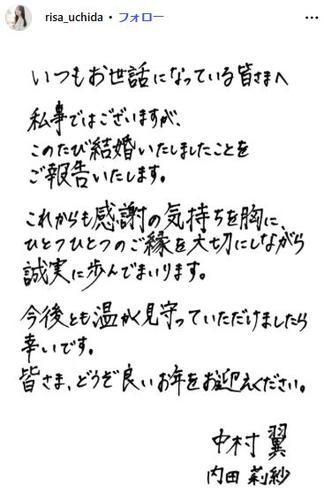 risa_uchida • フォロー
いつもお世話になっている皆さまへ
私事ではございますが、
このたび結婚いたしましたことを
ご報告いたします。
これからも感謝の気持ちを胸に、
ひとつひとつのご縁を大切にしながら
誠実に歩んでまいります。
今後とも温かく見守っていただけましたら
幸いです。
皆さま、どうぞ良いお年をお迎えください。
中村 翼
内田 莉紗